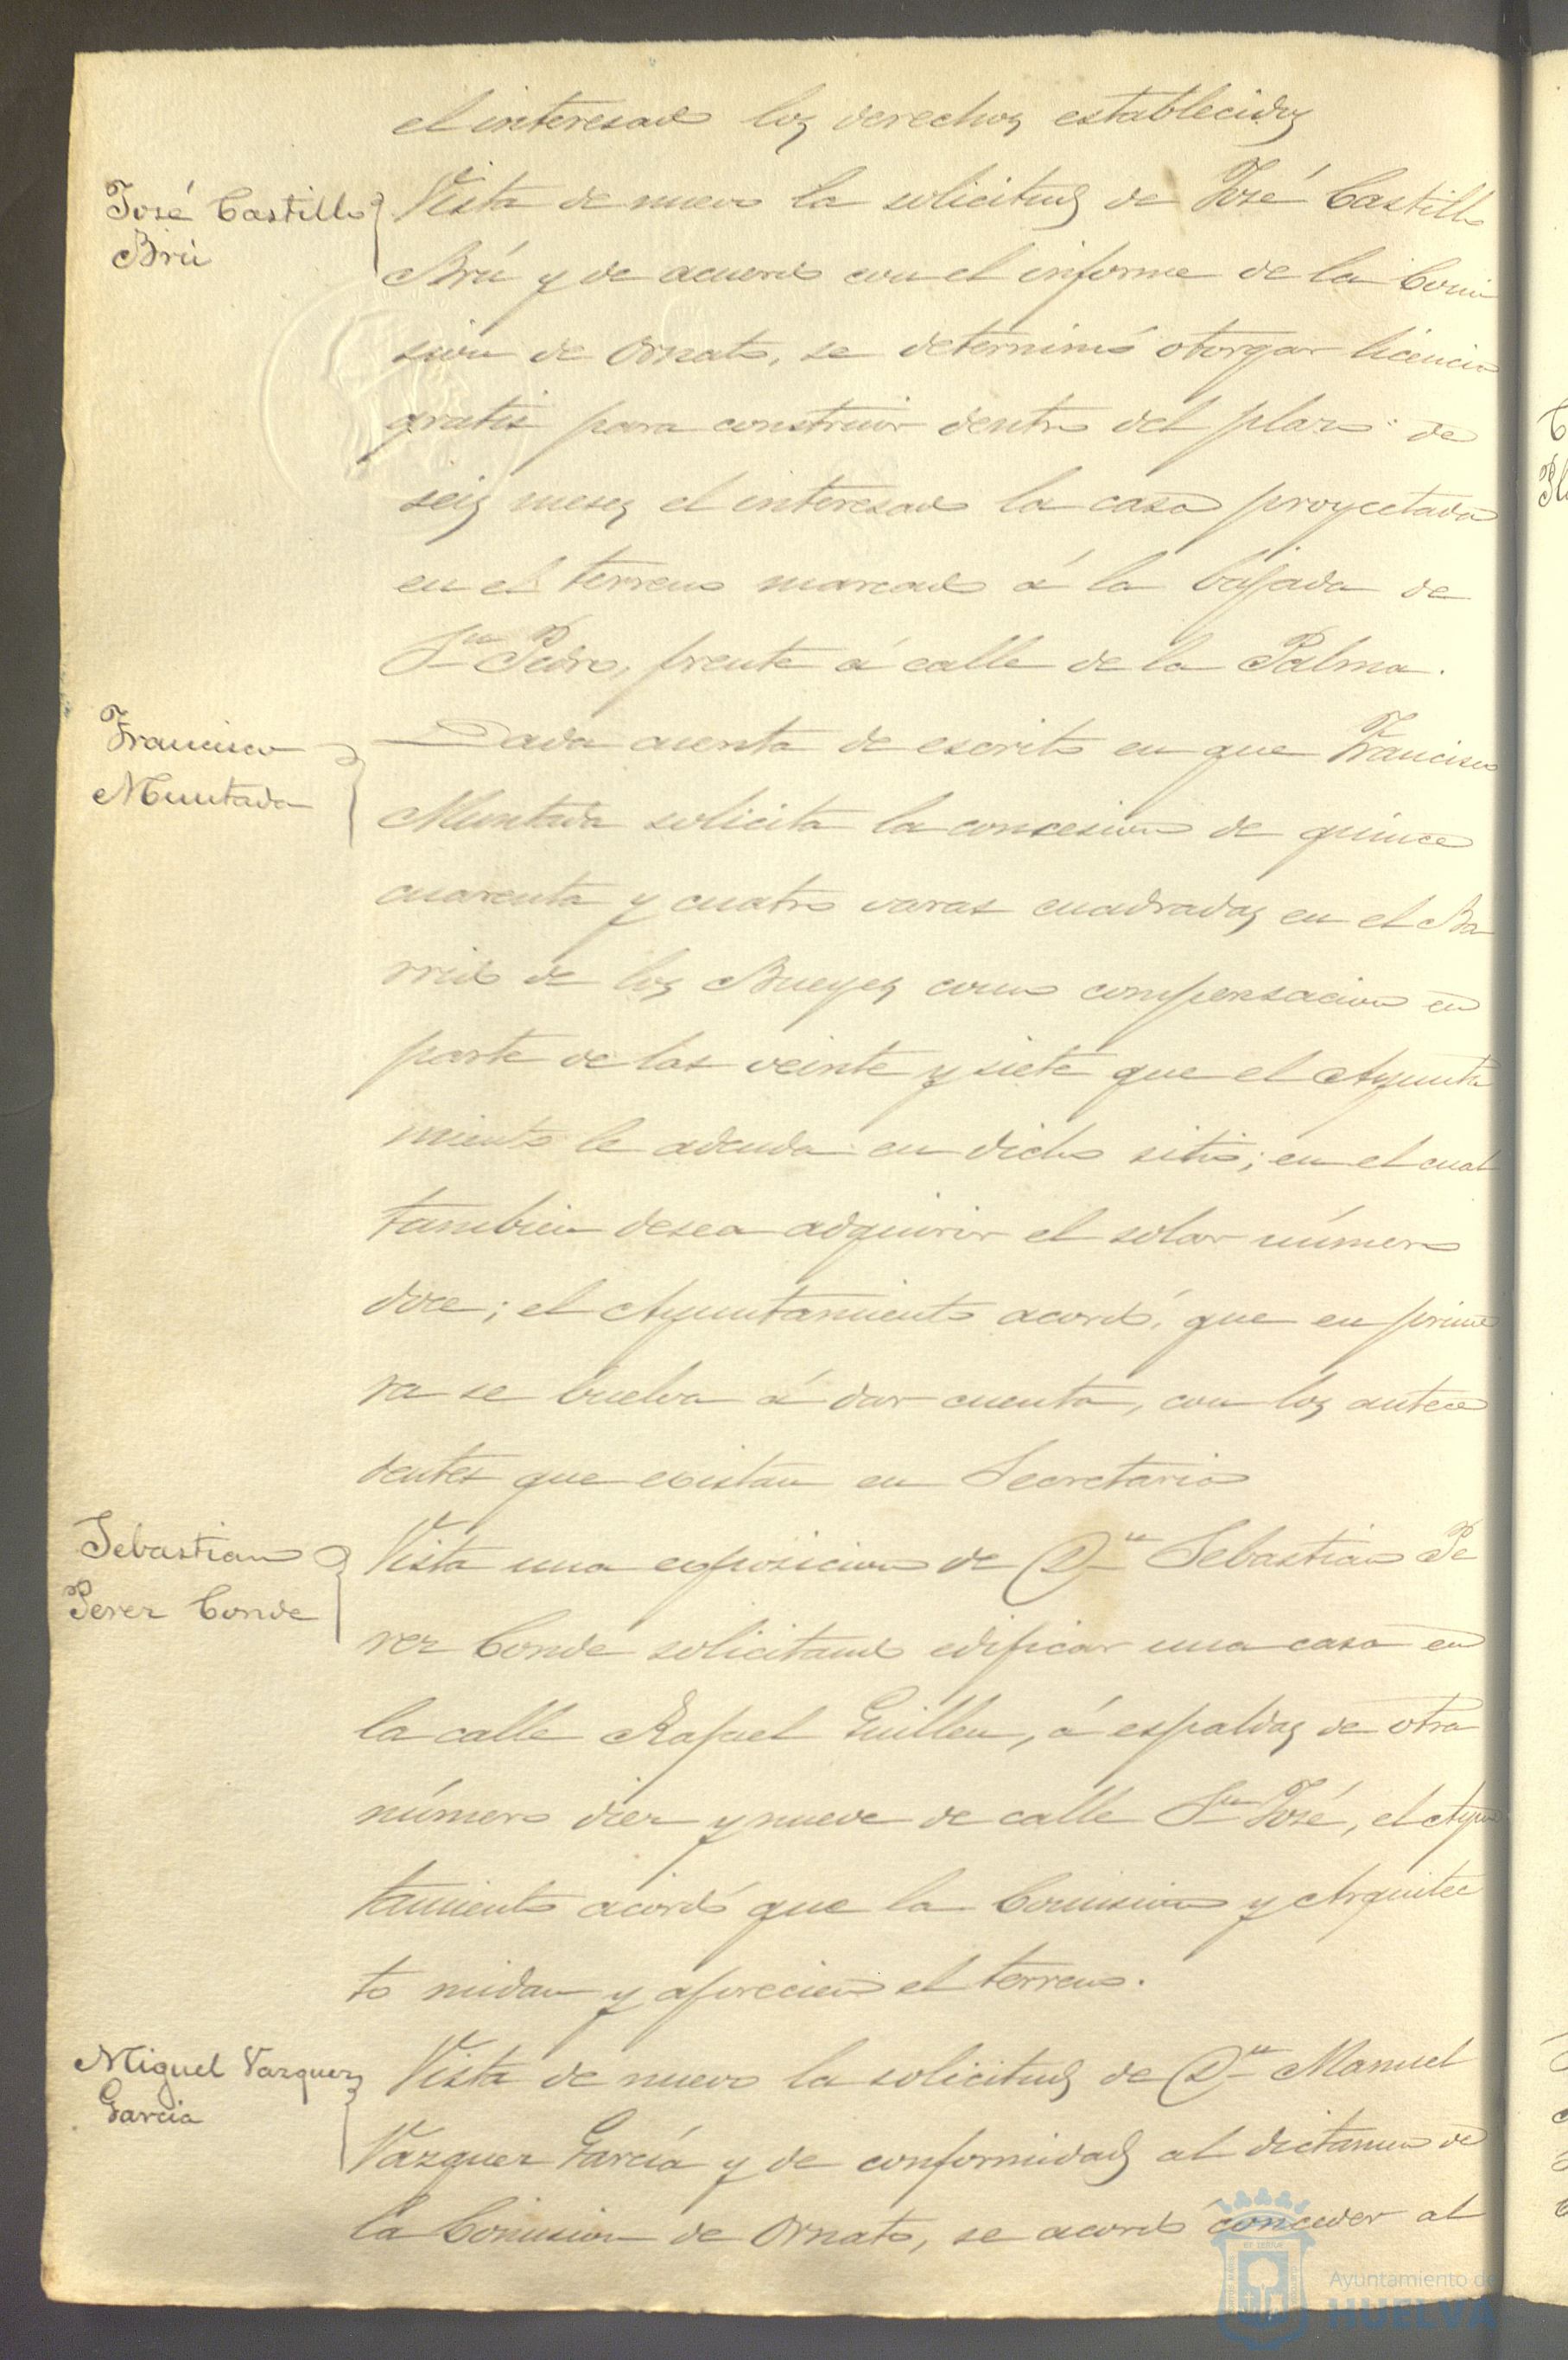 el interesado los derechos establecidos
José Castillo
Brú
Vista de nuevo la solicitud de José Castillo
Brú y de acuerdo con el informe de la Comi
sion de Ornato, se determinó otorgar licencia
gratis para construir dentro del plazo de
seis meses el interesado la casa proyectada
en el terreno marcado á la bajada de
Sn Pedro, frente á calle de la Palma.
Francisco
Muntada
Dada cuenta de escrito en que Francisco
Muntada solicita la concesion de quince
cuarenta y cuatro varas cuadradas en el Ba
rrio de los Bueyes como compensacion en
parte de las veinte y siete que el Ayunta
miento le adeuda en dicho sitio; en el cual
tambien desea adquirir el solar número
doce; el Ayuntamiento acordó, que en prime
ra se buelva á dar cuenta, con los antece
dentes que existan en Secretaria
Sebastian
Perez Conde
Vista una exposicion de Dn Sebastian Pe
rez Conde solicitando edificar una casa en
la calle Rafael Guillen, á espaldas de otra
número diez y nueve de calle Sn José, el Ayun
tamiento acordó que la Comision y Arquitec
to midan y aprecien el terreno.
Miguel Vazquez
Garcia
Vista de nuevo la solicitud de Dn Manuel
Vazquez García y de conformidad al dictamen de
la Comision de Ornato, se acordó conceder al
Ayuntamiento de
HUELVA